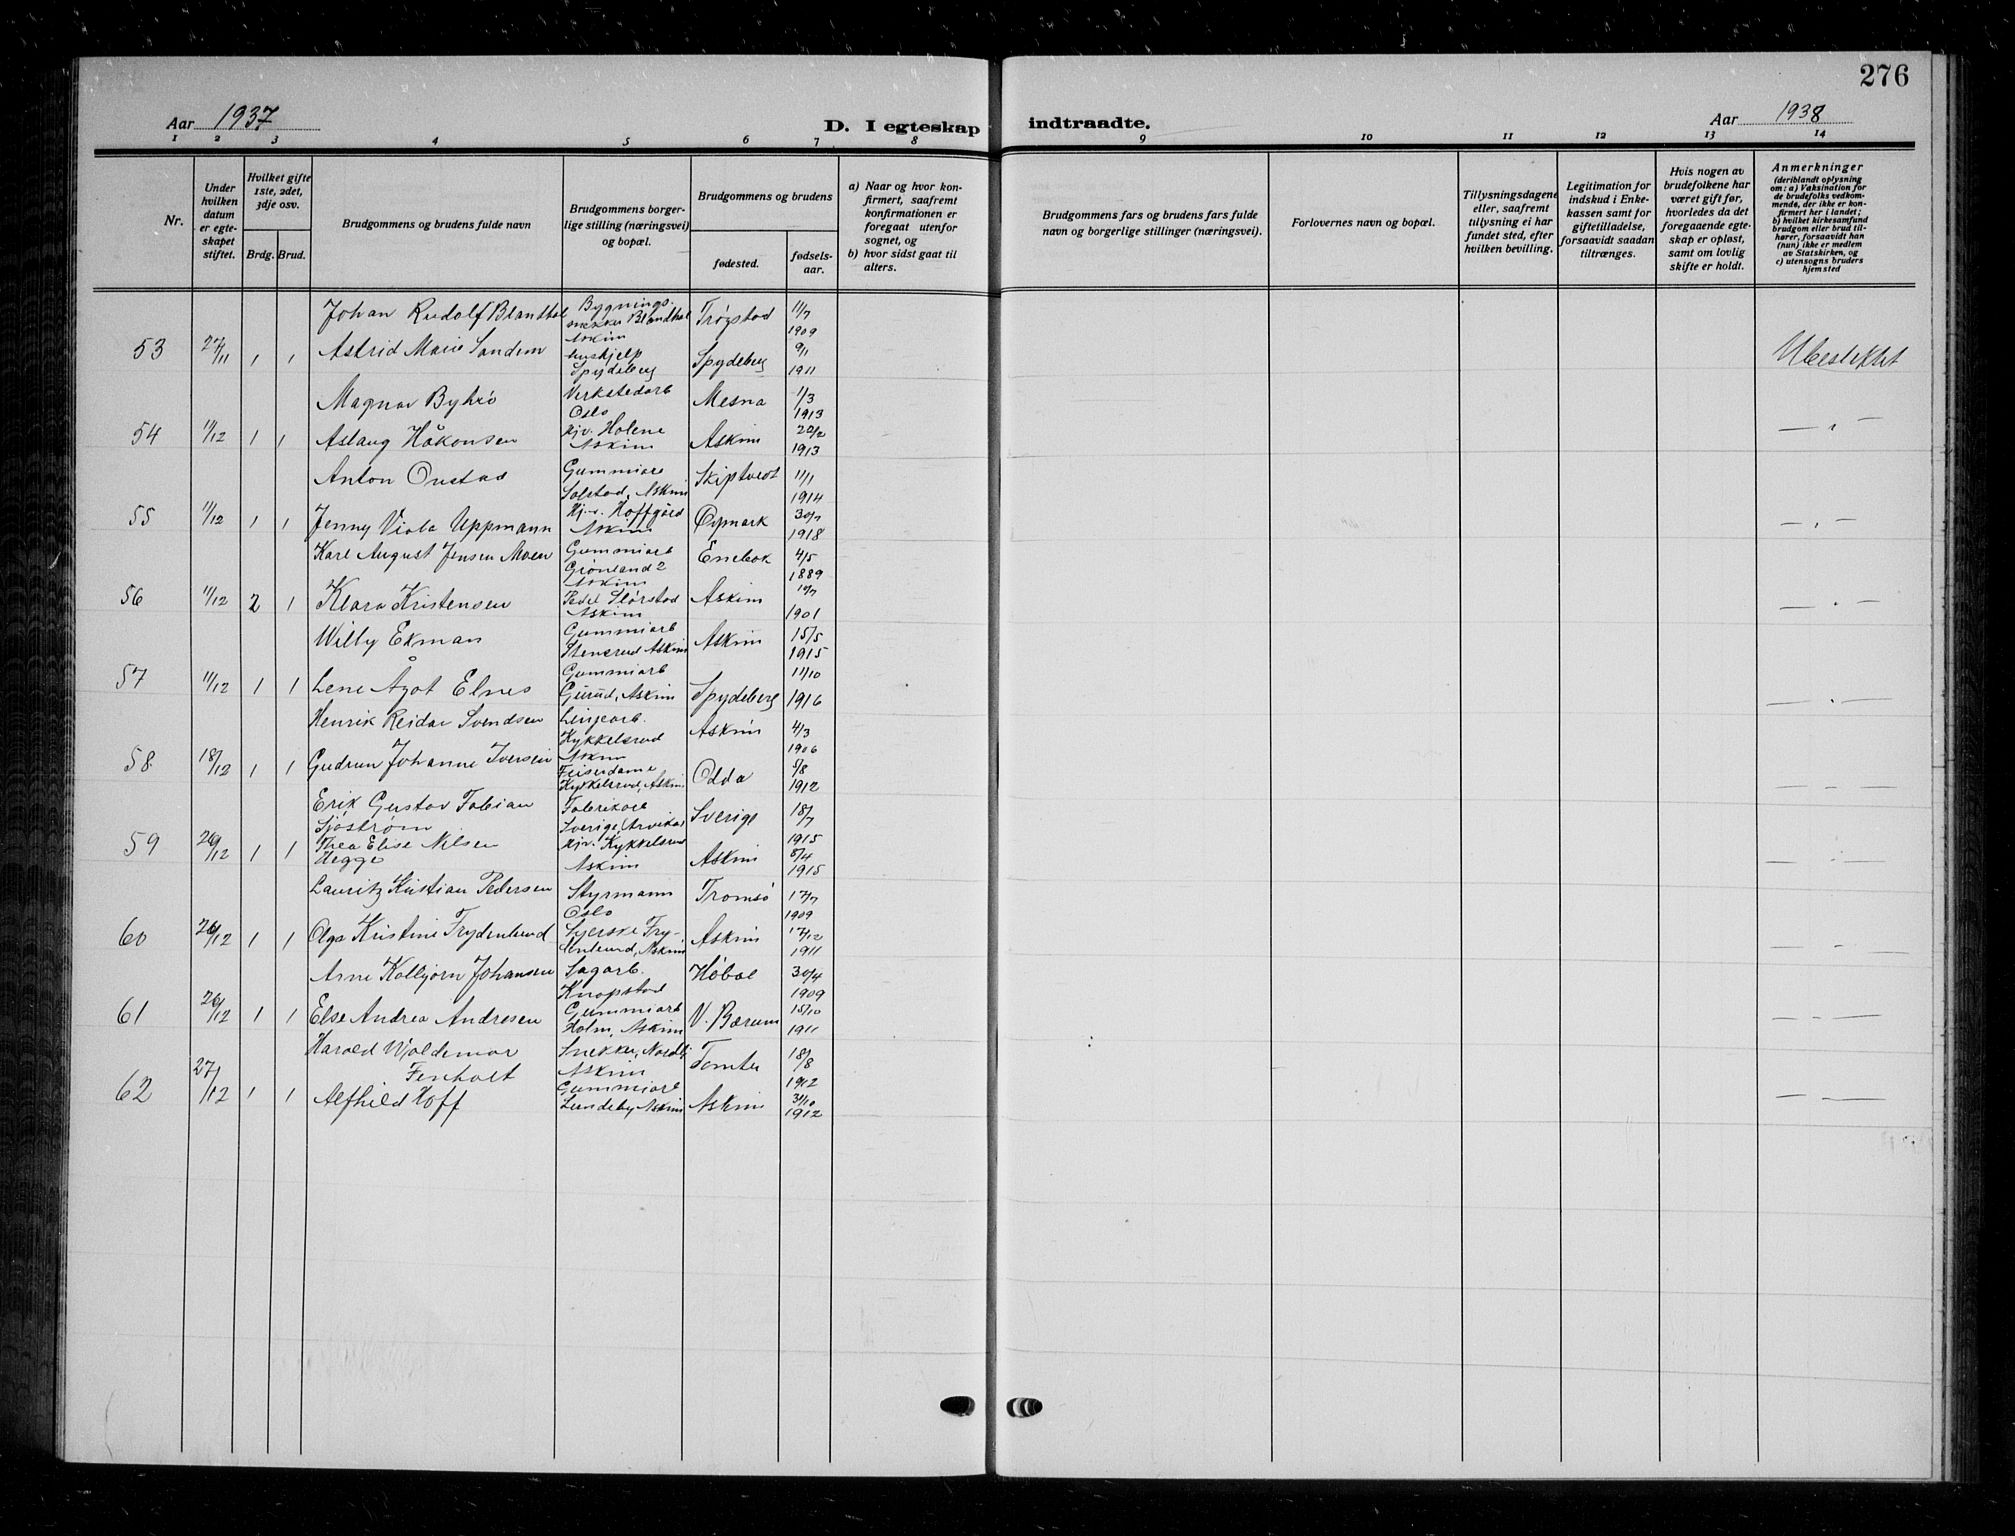 276
Aar 1937
D. I egteskap indtraadte.
Aar 1938
1 2 3 4 5 6 7 8 9 10 11 12 13 14
Nr.
Under hvilken datum er egteskapet stiftet.
Hvilket gifte 1ste, 2det, 3dje osv.
Brdg. Brud.
Brudgommens og brudens fulde navn
Brudgommens borgerlige stilling (næringsvei) og bopæl.
Brudgommens og brudens
fødested.
fødselsaar.
a) Naar og hvor konfirmert, saafremt konfirmationen er foregaat utenfor sognet, og
b) hvor sidst gaat til alters.
Brudgommens fars og brudens fars fulde navn og borgerlige stillinger (næringsvei).
Forlovernes navn og bopæl.
Tillysningsdagene eller, saafremt tillysning ei har fundet sted, efter hvilken bevilling.
Legitimation for indskud i Enkekassen samt for giftetilladelse, forsaavidt saadan tiltrænges.
Hvis nogen av brudefolkene har været gift før, hvorledes da det foregaaende egteskap er opløst, samt om lovlig skifte er holdt.
Anmerkninger
(deriblandt oplysning om: a) Vaksination for de brudefolks vedkommende, der ikke er konfirmert her i landet; b) hvilket kirkesamfund brudgom eller brud tilhører, forsaavidt han (hun) ikke er medlem av Statskirken, og c) utensogns bruders hjemsted
Johan Rudolf Blandhol Bygnings- snekker Blandhol Askim Trøgstad 11/7 1909
53 27/11 1 1 Astrid Marie Sandem hushjelp Spydeberg Spydeberg 9/1 1911 Ubeslektet
Magnar Byhrø Verkstedarb Oslo Mesna 1/3 1913
54 11/12 1 1 Aslaug Håkonsen Hjv. Holene Askim Askim 20/2 1913 — " —
Anton Onstad Gummiarb Solstad, Askim Skiptvedt 11/1 1914
55 11/12 1 1 Jenny Viola Uppmann Hj.v. Hoffgård Askim Øymark 30/7 1918 — " —
Karl August Jensen Moen Gummiarb Grønland 2 Askim Enebak 4/5 1889
56 11/12 2 1 Klara Kristensen Askim Askim 1901 — " —
Willy Ekman Gummiarb Stensrud Askim Askim 15/5 1915
57 11/12 1 1 Lene Ågot Elnes Gummiarb Gurud, Askim Spydeberg 11/10 1916 — " —
Henrik Reidar Svendsen Linjearb. Kykkelsrud Askim Askim 4/3 1906
58 18/12 1 1 Gudrun Johanne Iversen Frisørdame Kykkelsrud, Askim Odda 5/8 1912 — " —
Erik Gustav Fabian Sjøstrøm Fabrikarb Sverige, Arvika Sverige 18/7 1915
59 26/12 1 1 Thea Elise Nilsen Hegge Hjv. Kykkelsrud Askim Askim 8/4 1915 — " —
Lauritz Kristian Pedersen Styrmann Oslo Tromsø 17/7 1909
60 26/12 1 1 Olga Kristine Frydenlund Syerske Frydenlund, Askim Askim 17/12 1911 — " —
Arne Kolbjørn Johansen Sagarb. Knapstad Høbøl 30/4 1909
61 26/12 1 1 Else Andrea Andresen Gummiarb Holm, Askim V. Bærum 15/10 1911 — " —
Harald Waldemar Fenholt Snekker, Nordby Askim Tomter 18/8 1912
62 27/12 1 1 Alfhild Hoff Gummiarb Lundeby Askim Askim 31/10 1912 — " —